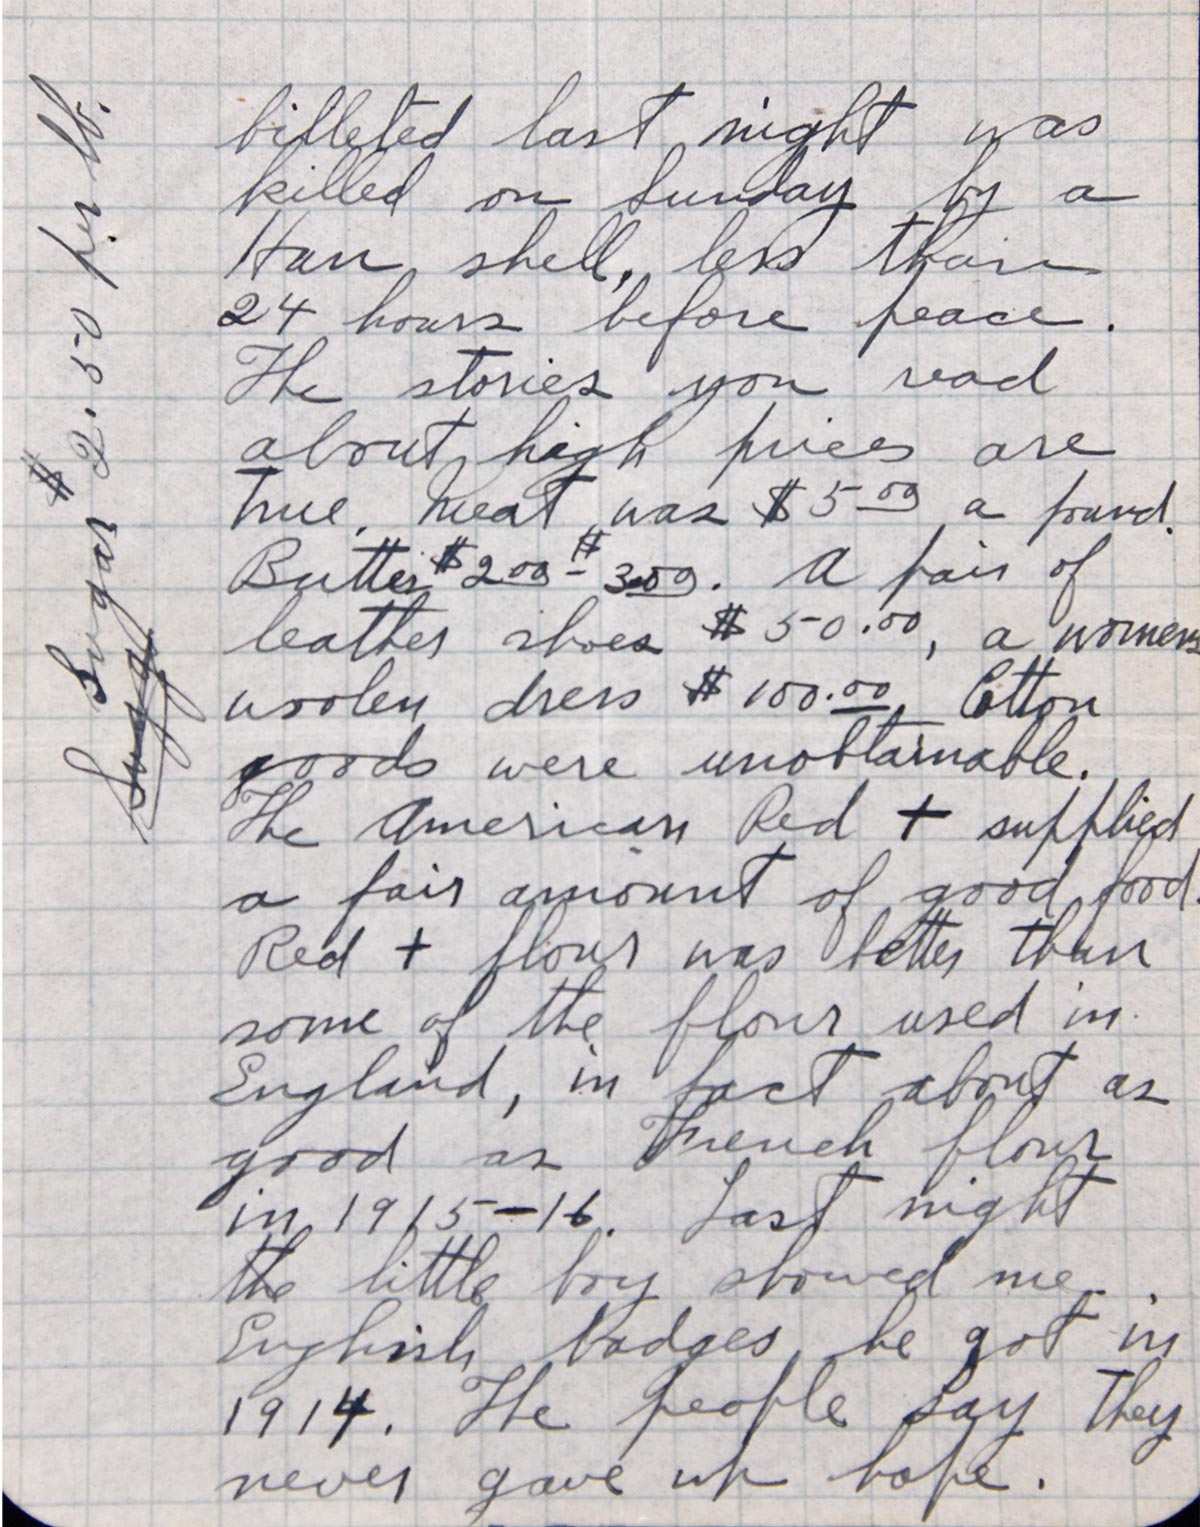 billeted last night was
killed on Sunday by a
Hun shell, less than
24 hours before peace.
The stories you read
about high prices are
true. Meat was $5.00 a pound.
Butter $2.00 - $3.00. A pair of
leather shoes $50.00, a womens
woolen dress $100.00. Cotton
goods were unobtainable.
The American Red + supplied
a fair amount of good food.
Red + flour was better than
some of the flour used in
England, in fact about as
good as French flour
in 1915-16. Last night
the little boy showed me
English badges he got in
1914. The people say they
never gave up hope.
Sugar $2.50 per lb.